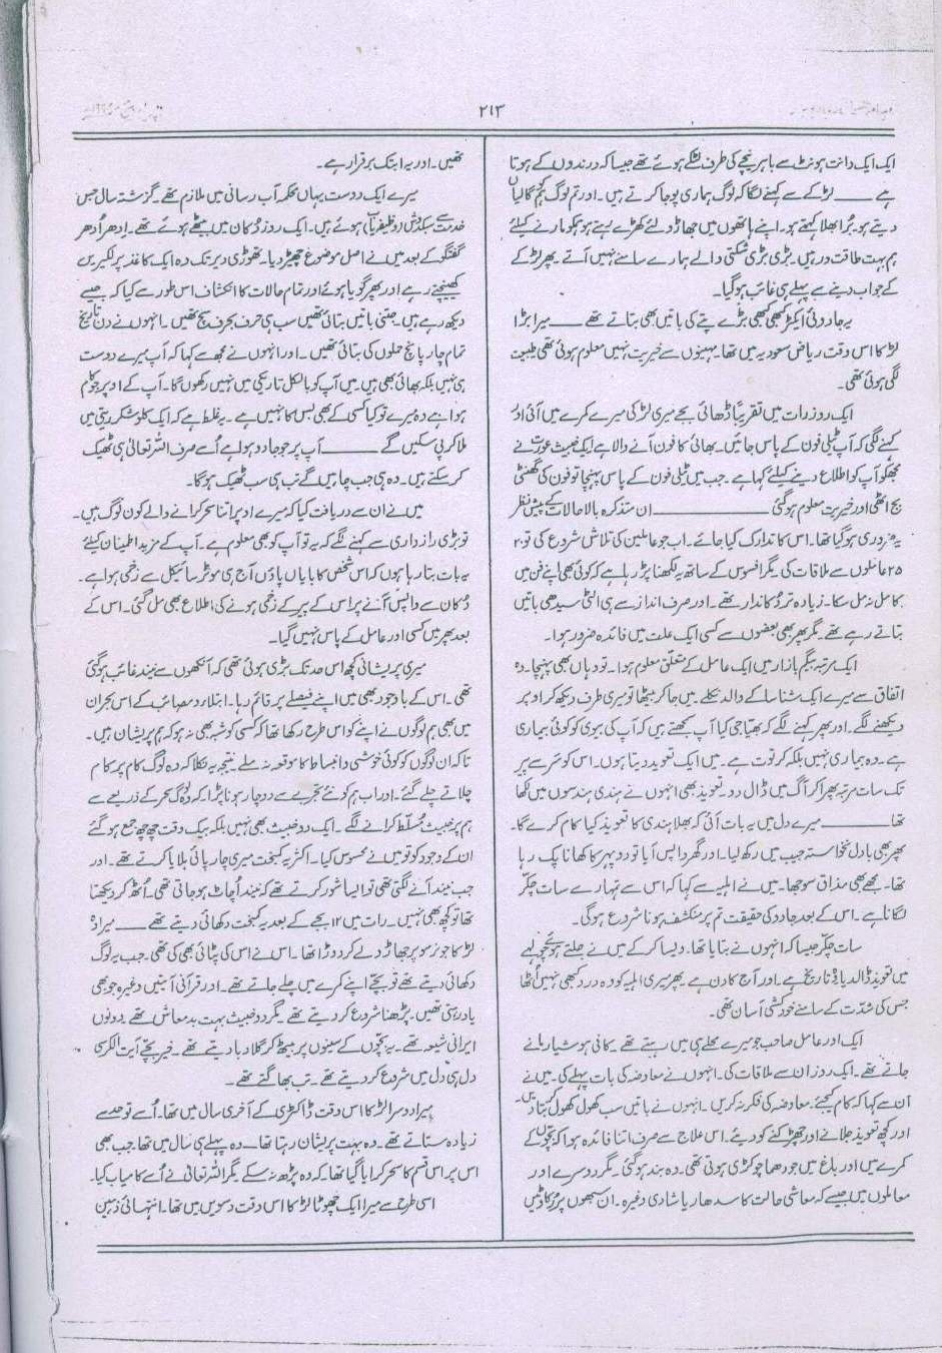 ۲۱۳
ایک ایک دانت ہونٹ سے باہر نیچے کی طرف لٹکے ہوئے تھے جیسا کہ درندوں کے ہوتا
ہے ــــ لڑکے سے کہنے لگا کہ لوگ ہماری پوجا کرتے ہیں۔ اور تم لوگ ہمکو گالیاں
دیتے ہو۔ بُرا بھلا کہتے ہو۔ اپنے ہاتھوں میں جھاڑو لئے کھڑے رہتے ہو ہمکو مارنے کیلئے
ہم بہت طاقت ور ہیں۔ بڑی بڑی شکتی والے ہمارے سامنے نہیں آتے۔ پھر لڑکے
کے جواب دینے سے پہلے ہی غائب ہو گیا۔
یہ جادوئی ایکڑ کبھی کبھی بڑے پتے کی باتیں بھی بتاتے تھے ــــ میرا بڑا
لڑکا اس وقت ریاض سعودیہ میں تھا۔ مہینوں سے خیریت نہیں معلوم ہوئی تھی طبیعت
لگی ہوئی تھی۔
ایک روز رات میں تقریباً ڈھائی بجے میری لڑکی میرے کمرے میں آئی اور
کہنے لگی کہ آپ ٹیلی فون کے پاس جائیں۔ بھائی کا فون آنے والا ہے ایک خبیث عورت نے
مجھکو آپ کو اطلاع دینے کیلئے کہا ہے۔ جب میں ٹیلی فون کے پاس پہنچا تو فون کی گھنٹی
بج اٹھی اور خیریت معلوم ہو گئی ــــ ان متذکرہ بالا حالات کے پیش نظر
یہ ضروری ہو گیا تھا۔ اس کا تدارک کیا جائے۔ اب جو عاملین کی تلاش شروع کی تو ۲۰
۲۵ عاملوں سے ملاقات کی۔ مگر افسوس کے ساتھ یہ لکھنا پڑ رہا ہے کہ کوئی بھی اپنے فن میں
کامل نہ مل سکا۔ زیادہ تر دُکاندار تھے۔ اور صرف انداز سے ہی الٹی سیدھی باتیں
بتاتے رہے تھے۔ مگر پھر بھی بعضوں سے کسی ایک علت میں فائدہ ضرور ہوا۔
ایک مرتبہ بیگم بازار میں ایک عامل کے متعلق معلوم ہوا۔ تو وہاں بھی پہنچا۔ وہ
اتفاق سے میرے ایک شناسا کے والد نکلے میں جا کر بیٹھا تو میری طرف دیکھ کر اوپر
دیکھنے لگے۔ اور پھر کہنے لگے کہ بھیا جی کیا آپ سمجھتے ہیں کہ آپ کی بیوی کو کوئی بیماری
ہے۔ وہ بیماری نہیں بلکہ کرتوت ہے۔ میں ایک تعویذ دیتا ہوں۔ اس کو سَر سے پیر
تک سات مرتبہ پھرا کر آگ میں ڈال دو۔ تعویذ بھی انہوں نے ہندی ہندسوں میں لکھا
تھا ــــ میرے دل میں یہ بات آئی کہ بھلا ہندی کا تعویذ کیا کام کرے گا۔
پھر بھی بادل نخواستہ جیب میں رکھ لیا۔ اور گھر واپس آیا تو دوپہر کا کھانا پک رہا
تھا۔ مجھے بھی مذاق سوجھا۔ میں نے اہلیہ سے کہا کہ اس سے تمہارے سات چکر
لگانا ہے۔ اس کے بعد جادو کی حقیقت تم پر منکشف ہونا شروع ہو گی۔
سات چکر جیسا کہ انہوں نے بتایا تھا۔ ویسا کر کے میں نے جلتے ہوئے چولہے
میں تعویذ ڈالدیا وہ تاریخ ہے۔ اور آج کا دن ہے۔ پھر میری اہلیہ کو وہ درد کبھی نہیں اُٹھا
جس کی شدّت کے سامنے خودکشی آسان تھی۔
ایک اور عامل صاحب جو میرے محلے ہی میں رہتے تھے۔ کافی ہوشیار مانے
جاتے تھے۔ ایک روز ان سے ملاقات کی۔ انہوں نے معاوضہ کی بات پہلے کی۔ میں نے
اُن سے کہا کہ کام کیجئے۔ معاوضہ کی فکر نہ کریں۔ انہوں نے باتیں سب کھول کھول کر بتا دیں۔
اور کچھ تعویذ جلانے اور چھڑکنے کو دیئے۔ اس علاج سے صرف اتنا فائدہ ہوا کہ بچوں کے
کمرے میں اور باغ میں جو دھما چوکڑی ہوتی تھی۔ وہ بند ہو گئی۔ مگر دوسرے اور
معاملوں میں جیسے کہ معاشی حالت کا سدھار یا شادی وغیرہ۔ ان سبھوں پر رُکاوٹیں
تھیں۔ اور یہ ابتک برقرار ہے۔
میرے ایک دوست یہاں محکمہ آب رسانی میں ملازم تھے۔ گزشتہ سال جس
خدمت سے سبکدوش (وظیفہ یاب) ہوئے ہیں۔ ایک روز دُکان میں بیٹھے ہوئے تھے۔ اِدھر اُدھر
گفتگو کے بعد میں نے اصل موضوع چھیڑ دیا۔ تھوڑی دیر تک وہ ایک کاغذ پر لکیریں
کھینچتے رہے اور پھر گویا ہوئے اور تمام حالات کا انکشاف اس طور سے کیا کہ جیسے
دیکھ رہے ہیں۔ جتنی باتیں بتائی تھیں سب ہی حرف بحرف سچ تھیں۔ انہوں نے دن تاریخ
تمام چار پانچ حملوں کی بتائی تھیں۔ اور انہوں نے مجھ سے کہا کہ آپ میرے دوست
ہی نہیں بلکہ بھائی بھی ہیں۔ میں آپ کو بالکل تاریکی میں نہیں رکھوں گا۔ آپ کے اوپر جو کام
ہوا ہے وہ میرے تو کیا کسی کے بھی بس کا نہیں ہے۔ یہ غلط ہے کہ ایک کلو شکر ریتی میں
ملا کر پی سکیں گے ــــ آپ پر جو جادو ہوا ہے اُسے صرف اللہ تعالیٰ ہی ٹھیک
کر سکتے ہیں۔ وہ ہی جب چاہیں گے تب ہی سب ٹھیک ہوگا۔
میں نے ان سے دریافت کیا کہ میرے اوپر اتنا سحر کرانے والے کون لوگ ہیں۔
تو بڑی رازداری سے کہنے لگے کہ یہ تو آپ کو بھی معلوم ہے۔ آپ کے مزید اطمینان کیلئے
یہ بات بتا رہا ہوں کہ اس شخص کا بایاں پاؤں آج ہی موٹر سائیکل سے زخمی ہوا ہے۔
دُکان سے واپس آنے پر اس کے پیر کے زخمی ہونے کی اطلاع بھی مل گئی۔ اس کے
بعد پھر میں کسی اور عامل کے پاس نہیں گیا۔
میری پریشانی کچھ اس حد تک بڑی ہوئی تھی کہ آنکھوں سے نیند غائب ہو گئی
تھی۔ اس کے باوجود بھی میں اپنے فیصلے پر قائم رہا۔ ابتلاء و مصائب کے اس بحران
میں بھی ہم لوگوں نے اپنے کو اس طرح رکھا تھا کہ کسی کو شبہ بھی نہ ہو کہ ہم پریشان ہیں۔
تاکہ ان لوگوں کو کوئی خوشی و انبساط کا موقعہ نہ ملے۔ نتیجہ یہ نکلا کہ وہ لوگ کام پر کام
چلاتے چلے گئے۔ اور اب ہم کو نئے تجربے سے دوچار ہونا پڑا کہ وہ لوگ سحر کے ذریعے سے
ہم پر خبیث مُسلّط کرانے لگے۔ ایک دو خبیث بھی نہیں بلکہ بیک وقت چھ چھ جمع ہو گئے
ان کے وجود کو تو میں نے محسوس کیا۔ اکثر یہ کمبخت میری چارپائی ہلایا کرتے تھے۔ اور
جب نیند آنے لگتی تھی تو ایسا شور کرتے تھے کہ نیند اُچاٹ ہو جاتی تھی۔ اُٹھ کر دیکھتا
تھا تو کچھ بھی نہیں۔ رات میں ۱۲ بجے کے بعد یہ کمبخت دکھائی دیتے تھے ــــ میرا وہ
لڑکا جو نرسو پر جھاڑو لے کر دوڑا تھا۔ اس نے اس کی پٹائی بھی کی تھی۔ جب یہ لوگ
دکھائی دیتے تھے تو بچے اپنے کمرے میں چلے جاتے تھے۔ اور قرآنی آیتیں وغیرہ جو بھی
یاد رہتی تھیں۔ پڑھنا شروع کر دیتے تھے۔ مگر دو خبیث بہت بدمعاش تھے۔ یہ دونوں
ایرانی شیعہ تھے۔ یہ بچوں کے سینوں پر بیٹھ کر گلا دبا دیتے تھے۔ خیر بچے آیت الکرسی
دل ہی دل میں شروع کر دیتے تھے۔ تب بھاگتے تھے۔
میرا دوسرا لڑکا اس وقت ڈاکٹری کے آخری سال میں تھا۔ اُسے تو حد سے
زیادہ ستاتے تھے۔ وہ بہت پریشان رہتا تھا۔ وہ پہلے ہی سال میں تھا۔ جب بھی
اس پر اس قسم کا سحر کرایا گیا تھا کہ وہ پڑھ نہ سکے۔ مگر اللہ تعالیٰ نے اُسے کامیاب کیا۔
اسی طرح سے میرا ایک چھوٹا لڑکا اس وقت دسویں میں تھا۔ انتہائی ذہین